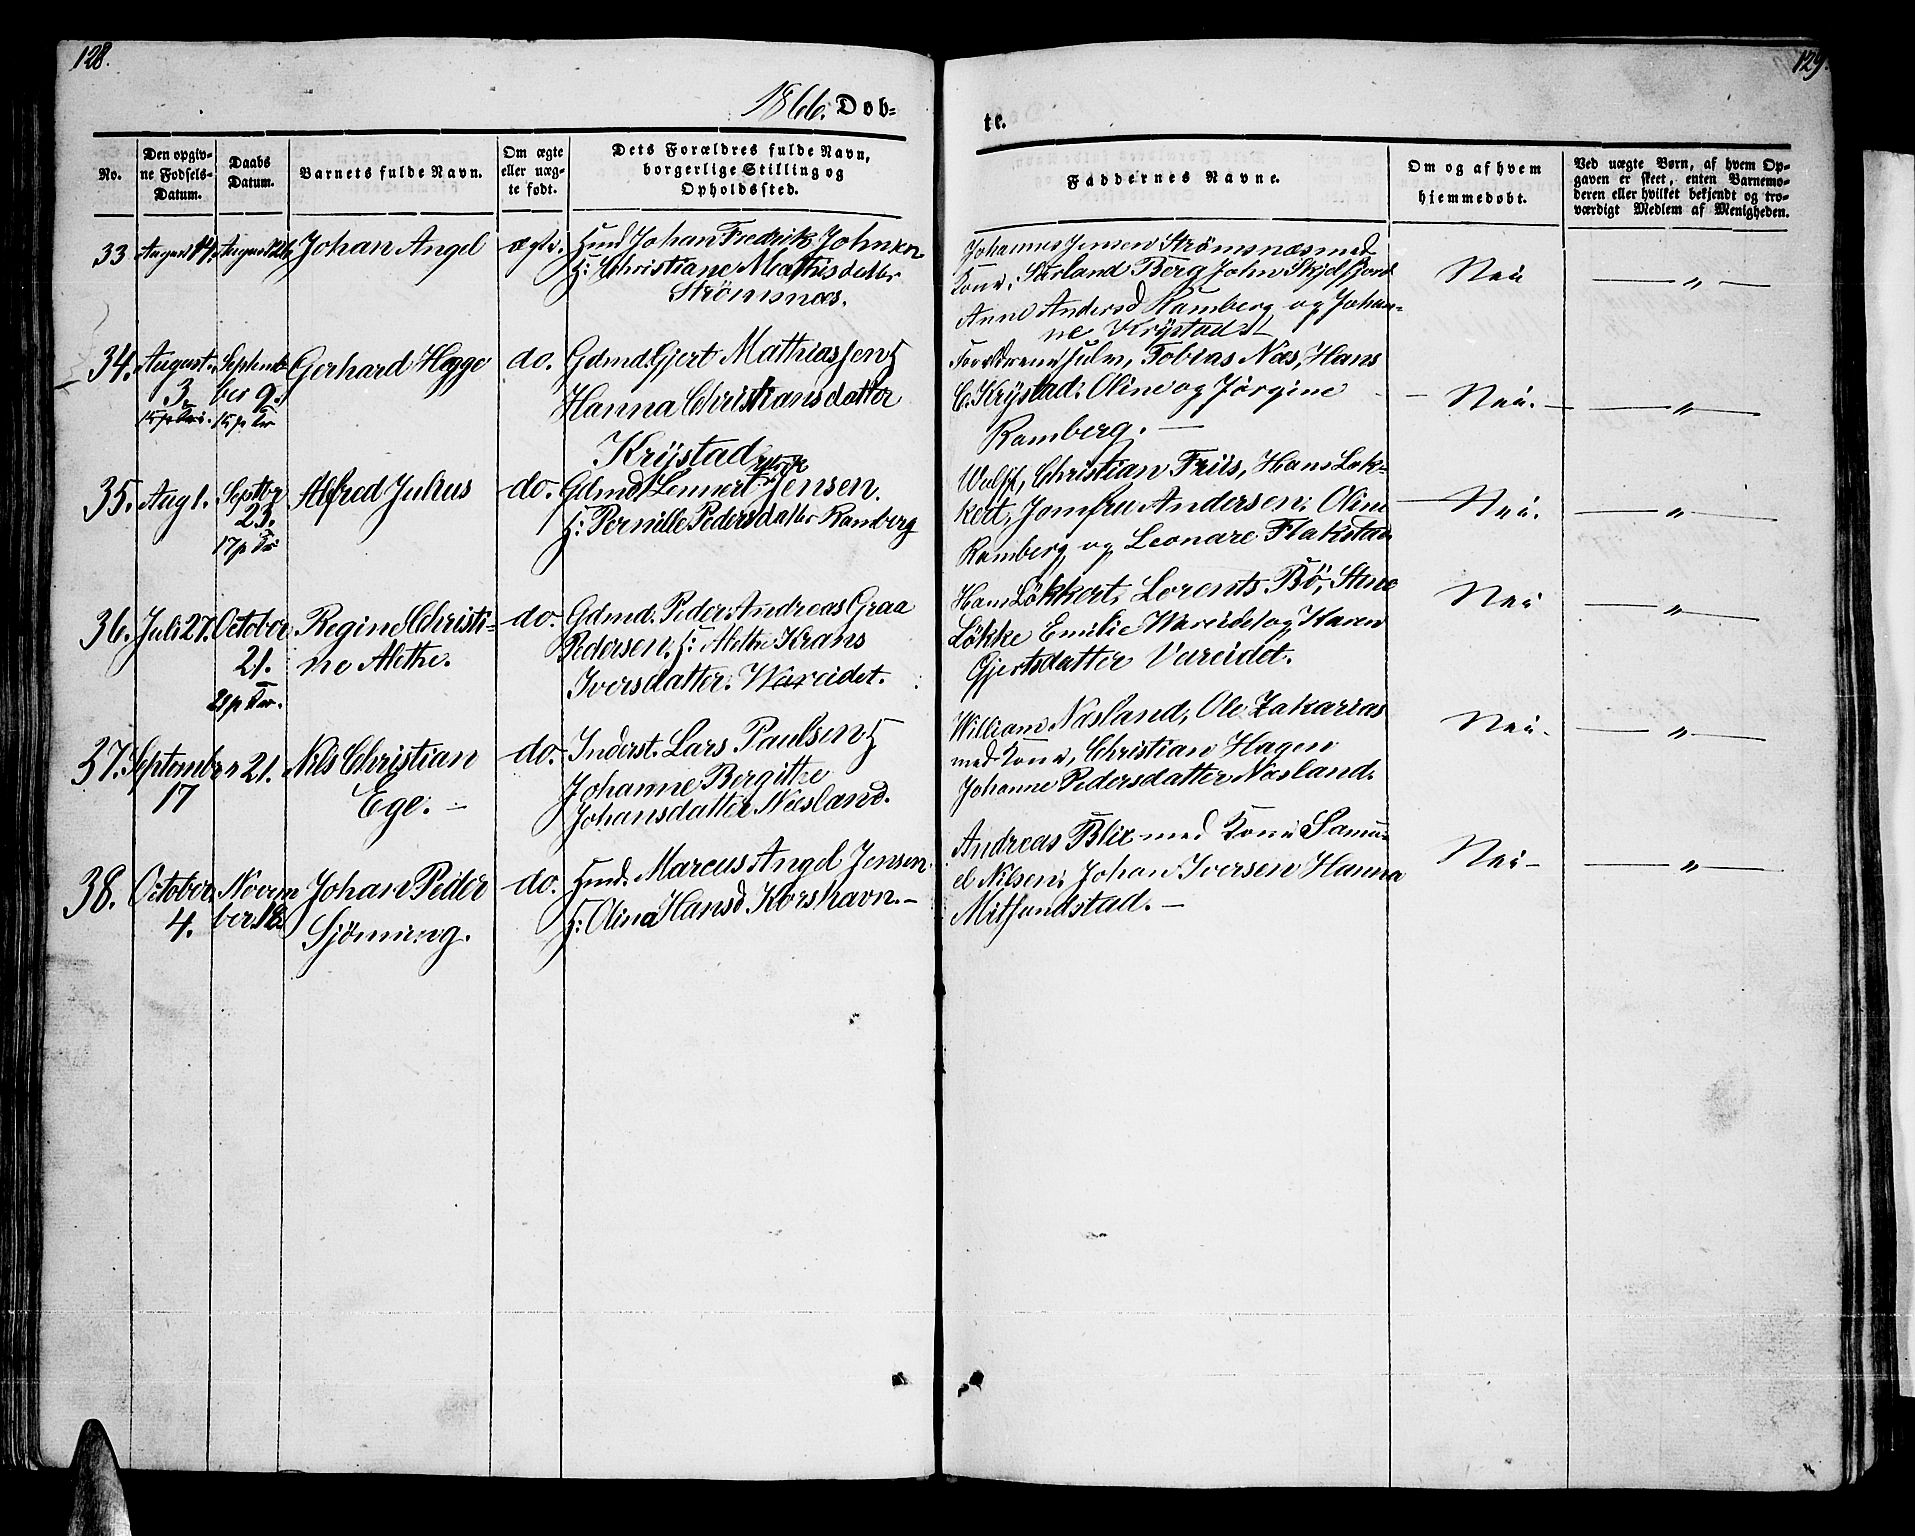 128.
129.
1866. Døb-
te.
No.
Den opgiv-
ne Fødsels-
Datum.
Daabs
Datum.
Barnets fulde Navn.
Om ægte
eller uæg-
te født.
Dets Forældres fulde Navn,
borgerlige Stilling og
Opholdssted.
Faddernes Navne.
Om og af hvem
hjemmedøbt.
Ved uægte Børn, af hvem Op-
gaven er skeet, enten Barnemo-
deren eller hvilket bekjendt og tro-
værdigt Medlem af Menigheden.
33 August 14. August 26 Johan Angel ægte.
Johan Fredrik Johnsen
H: Christiane Mathisdatter
Strømsnæs.
Johannes Jensen Strømsnæs med
Kone, Berg John Skjelfjord
Anne Andersd Ramberg og Johan-
ne Krÿstad
Nei — „ —
34. August 3 Septem-
ber 9.
Gerhard Hegge do.
Gdmd. Gjert Mathias Jens
Hanna Christiansdatter
Krÿstad
Forældrene selv, Tobias Næs, Hans
C. Krÿstad; Oline og Jørgine
Ramberg. —
Nei. — „ —
35. Aug 1. Septbr
23.
17 p Tr
Alfred Julius do.
Gdmd Lennert Jensen.
H: Pernille Pedersdatter Ramberg
Wulff, Christian Friis, Hans Løk-
kert, Jomfru Andersen; Oline
Ramberg og Leonare Flakstad
Nei. — „ —
36. Juli 27. October
21.
21 p Tr.
Regine Christi-
ne Alethe.
do.
Gdmd. Peder Andreas Graa
Pedersen. H: Alethe Krans
Iversdatter. Wareidet.
Hans Løkkert, Lorents Bö, Stine
Løkke Emilie Wareidet og Karen
Gjertsdatter Vareidet.
Nei — „ —
37. September
17
21.
Nils Christian
Ege. —
do.
Inderst. Lars Paulsen H
Johanne Bergithe
Johansdatter Næsland.
William Næsland, Ole Zakarias
med Kone, Christian Hagen
Johanne Pedersdatter Næsland.
Nei. — „ —
38. October
4.
Novem
ber 18.
Johan Peder
Sjönning.
do.
Marcus Angel Jensen
H: Olina Hansd. Korshavn. —
Andreas Blix med Kone Samu-
el Nilsen; Johan Iversen Hanna
Mitsundstad. —
Nei — „ —